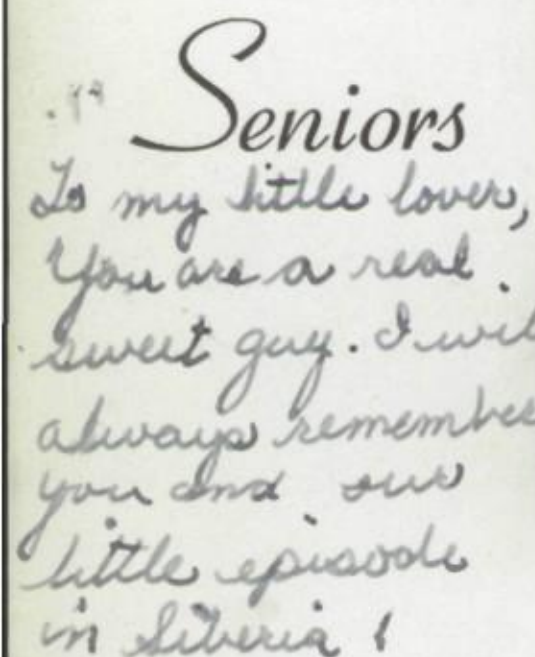 Seniors
To my little lover,
You are a real
sweet guy. I will
always remember
you and our
little episode
in Siberia!